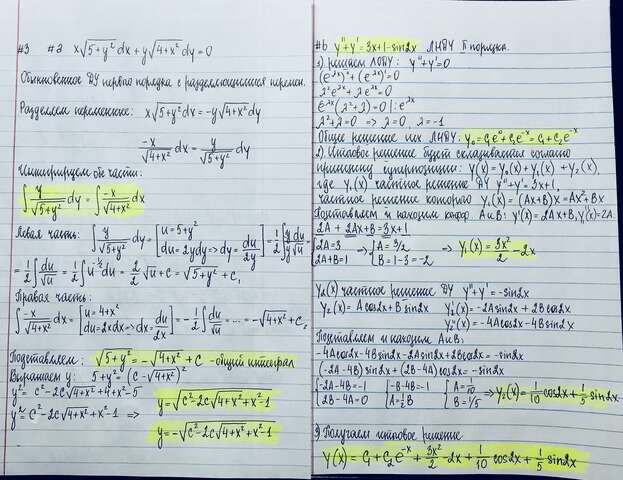 #3 #a x√(5+y²) dx + y√(4+x²) dy = 0
Обыкновенное ДУ первого порядка с разделяющимися перемен.
Разделяем переменные: x√(5+y²) dx = -y√(4+x²) dy
-x/√(4+x²) dx = y/√(5+y²) dy
Интегрируем обе части:
∫ y/√(5+y²) dy = ∫ -x/√(4+x²) dx
Левая часть: ∫ y/√(5+y²) dy = [u = 5+y² du = 2ydy => dy = du/2y] = 1/2 ∫ y du/y√u =
= 1/2 ∫ du/√u = 1/2 ∫ u^(-1/2) du = 2/2 √u + c = √(5+y²) + c₁
Правая часть:
∫ -x/√(4+x²) dx = [u = 4+x² du = 2xdx => dx = du/2x] = -1/2 ∫ du/√u = .... = -√(4+x²) + c₂
Подставляем: √(5+y²) = -√(4+x²) + c - общий интеграл
Выражаем y: 5+y² = (c - √(4+x²))²
y² = c² - 2c√(4+x²) + 4 + x² - 5
y² = c² - 2c√(4+x²) + x² - 1 =>
y = √(c² - 2c√(4+x²) + x² - 1)
y = -√(c² - 2c√(4+x²) + x² - 1)
#б y'' + y' = 3x + 1 - sin2x ЛНДУ II порядка.
1) решаем ЛОДУ: y'' + y' = 0
(e^(λx))'' + (e^(λx))' = 0
λ²e^(λx) + λe^(λx) = 0
e^(λx)(λ² + λ) = 0 |: e^(λx)
λ² + λ = 0 => λ = 0, λ = -1
Общее решение ЛНДУ: y₀ = C₁e⁰ + C₂e^(-x) = C₁ + C₂e^(-x)
2) Итоговое решение будет складываться согласно
принципу суперпозиции: y(x) = y₀(x) + y₁(x) + y₂(x),
где y₁(x) частное решение ДУ y'' + y' = 3x + 1,
частное решение которого y₁(x) = (Ax+B)x = Ax² + Bx
Подставляем и находим коэф A и B: y'(x) = 2Ax + B, y''(x) = 2A
2A + 2Ax + B = 3x + 1
{2A = 3 2A + B = 1 => {A = 3/2 B = 1 - 3 = -2 => y₁(x) = 3x²/2 - 2x
y₂(x) частное решение ДУ y'' + y' = -sin2x
y₂(x) = A cos2x + B sin2x y₂'(x) = -2A sin2x + 2B cos2x
y₂''(x) = -4A cos2x - 4B sin2x
Подставляем и находим A и B:
-4A cos2x - 4B sin2x - 2A sin2x + 2B cos2x = -sin2x
(-2A - 4B) sin2x + (2B - 4A) cos2x = -sin2x
{-2A - 4B = -1 2B - 4A = 0 {-B - 4B = -1 A = 1/2 B {A = 1/10 B = 1/5 => y₂(x) = 1/10 cos2x + 1/5 sin2x
3) Получаем итоговое решение
y(x) = C₁ + C₂e^(-x) + 3x²/2 - 2x + 1/10 cos2x + 1/5 sin2x